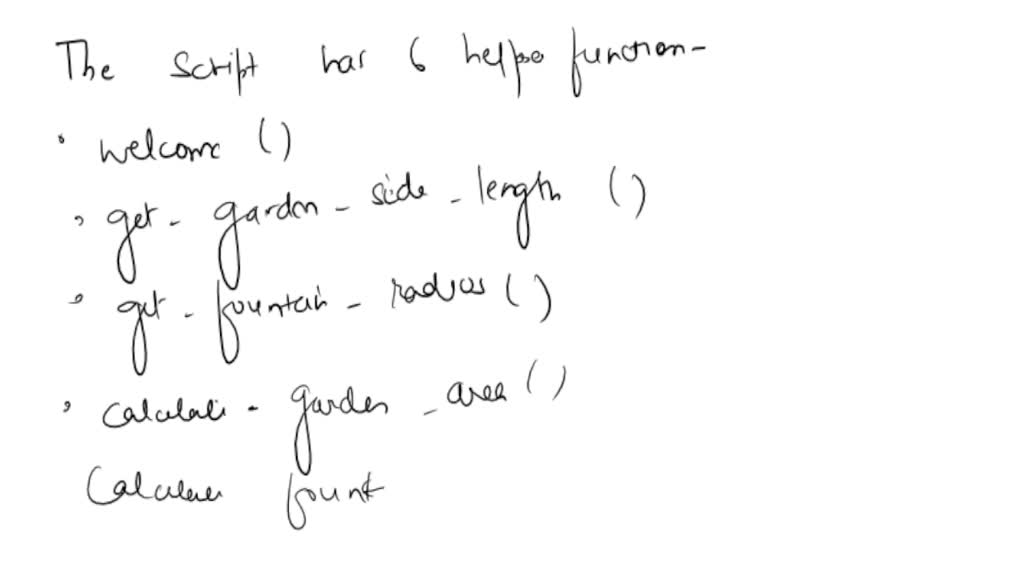 The script has 6 helpe function-
• welcome ()
• get - garden - side - length ()
• get - fountain - radius ()
• calculate - garden - area ()
Calculate fount